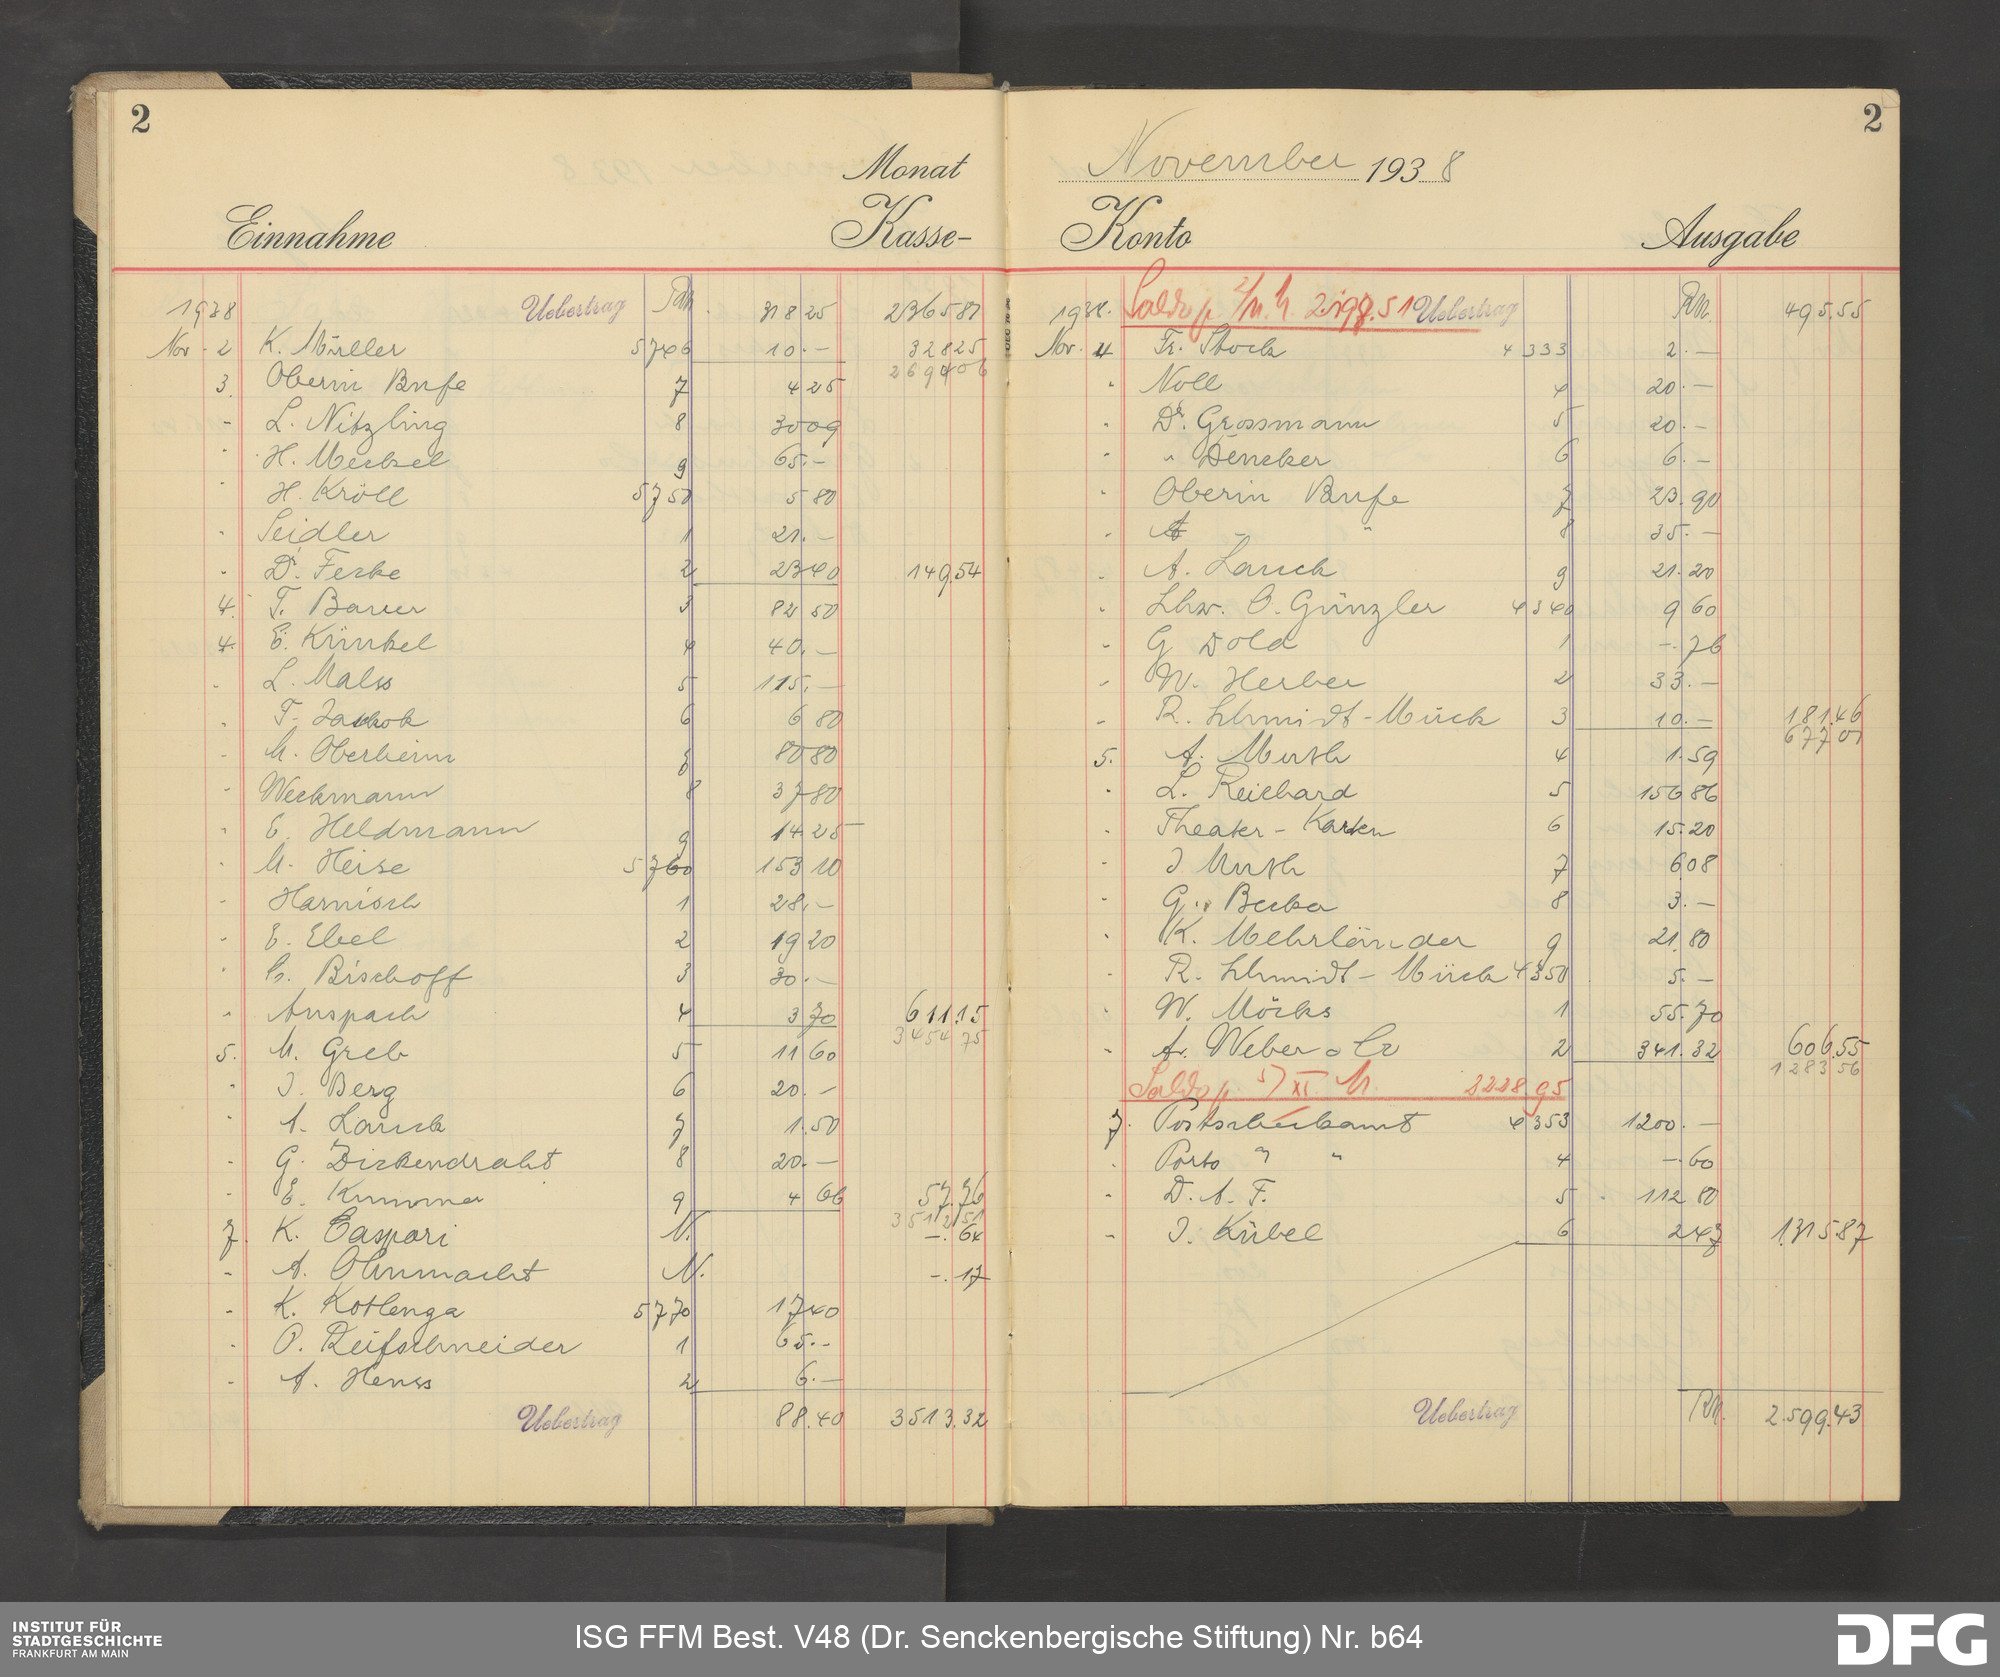 2
Monat
Einnahme Kasse-
1938 Uebertrag RM. 318 25 2365 81
Nov - 2 K. Müller 5746 10.- 328 25
2694 06
3. Oberin Bufe 7 4 25
- L. Nitzling 8 30 09
- H. Merkel 9 65.-
- H. Kröll 5750 5 80
- Seidler 1 21.-
- Dr. Ferke 2 23 40 149 54
4. F. Bauer 3 82 50
4. E. Künkel 4 40.-
- L. Malss 5 115.-
- 6 6 80
- M. Oberheim 7 80 80
- Weckmann 8 37 80
- E. Heldmann 9 14 25
- M. Heise 5760 153 10
- Harnisch 1 28.-
- E. Ebel 2 19 20
- Bischoff 3 30.-
- Anspach 4 3 70 611.15
3454 75
5. M. Greb 5 11 60
" J. Berg 6 20.-
- A. Lauck 7 1.50
- G. Dickendraht 8 20.-
- E. Kummer 9 4 66 57.76
3512 51
7. K. Caspari N. -.64
- A. Ohnmacht N. -.17
- K. Kotlenga 5770 17 40
- P. Reifschneider 1 65.-
- A. Henss 2 6.-
Uebertrag 88.40 3513.32
2
November 1938
Konto Ausgabe
1938. Saldo p. 2199.51 Uebertrag RM. 495.55
Nov. 4 Fr. Stock 4333 2.-
" Noll 4 20.-
- Dr. Grossmann 5 20.-
- " Dencker 6 6.-
- Oberin Bufe 7 23.90
- " " 8 35.-
- A. Lauck 9 21.20
- Schw. O. Günzler 4340 9 60
- G Dold 1 -.76
- W. Herber 2 33.-
- R. Schmidt-Mück 3 10.- 181.46
677 01
5. A. Muth 4 1.59
- L. Reichard 5 156 86
- Theater-Karten 6 15.20
- J Muth 7 6 08
- G. Becker 8 3.-
- K. Mehrländer 9 21.80
- R. Schmidt-Mück 4350 5.-
- W. Möcks 1 55.70
- Fr. Weber & Co 2 341.32 606.55
1283 56
Saldo p. 5/XI. M. 2228.95
7. Postscheckamt 4353 1200.-
- Porto " " 4 -.60
- D. A. F. 5 112 80
- J. Kübel 6 2 47 1.315.87
Uebertrag RM. 2.599.43
INSTITUT FÜR
STADTGESCHICHTE
FRANKFURT AM MAIN
ISG FFM Best. V48 (Dr. Senckenbergische Stiftung) Nr. b64
DFG